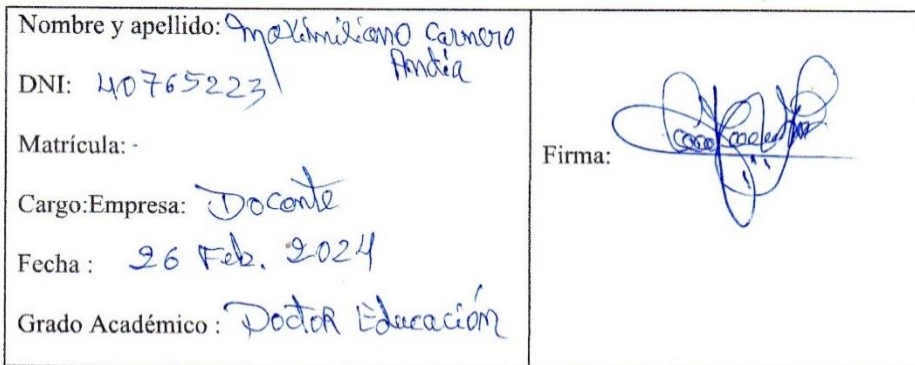 Nombre y apellido: Maximiliano Carnero
Andía
DNI: 40765223
Matrícula: -
Cargo:Empresa: Docente
Fecha : 26 Feb. 2024
Grado Académico : Doctor Educación
Firma: